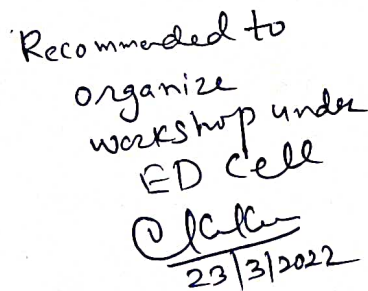 Recommended to
organize
workshop under
ED cell
23/3/2022